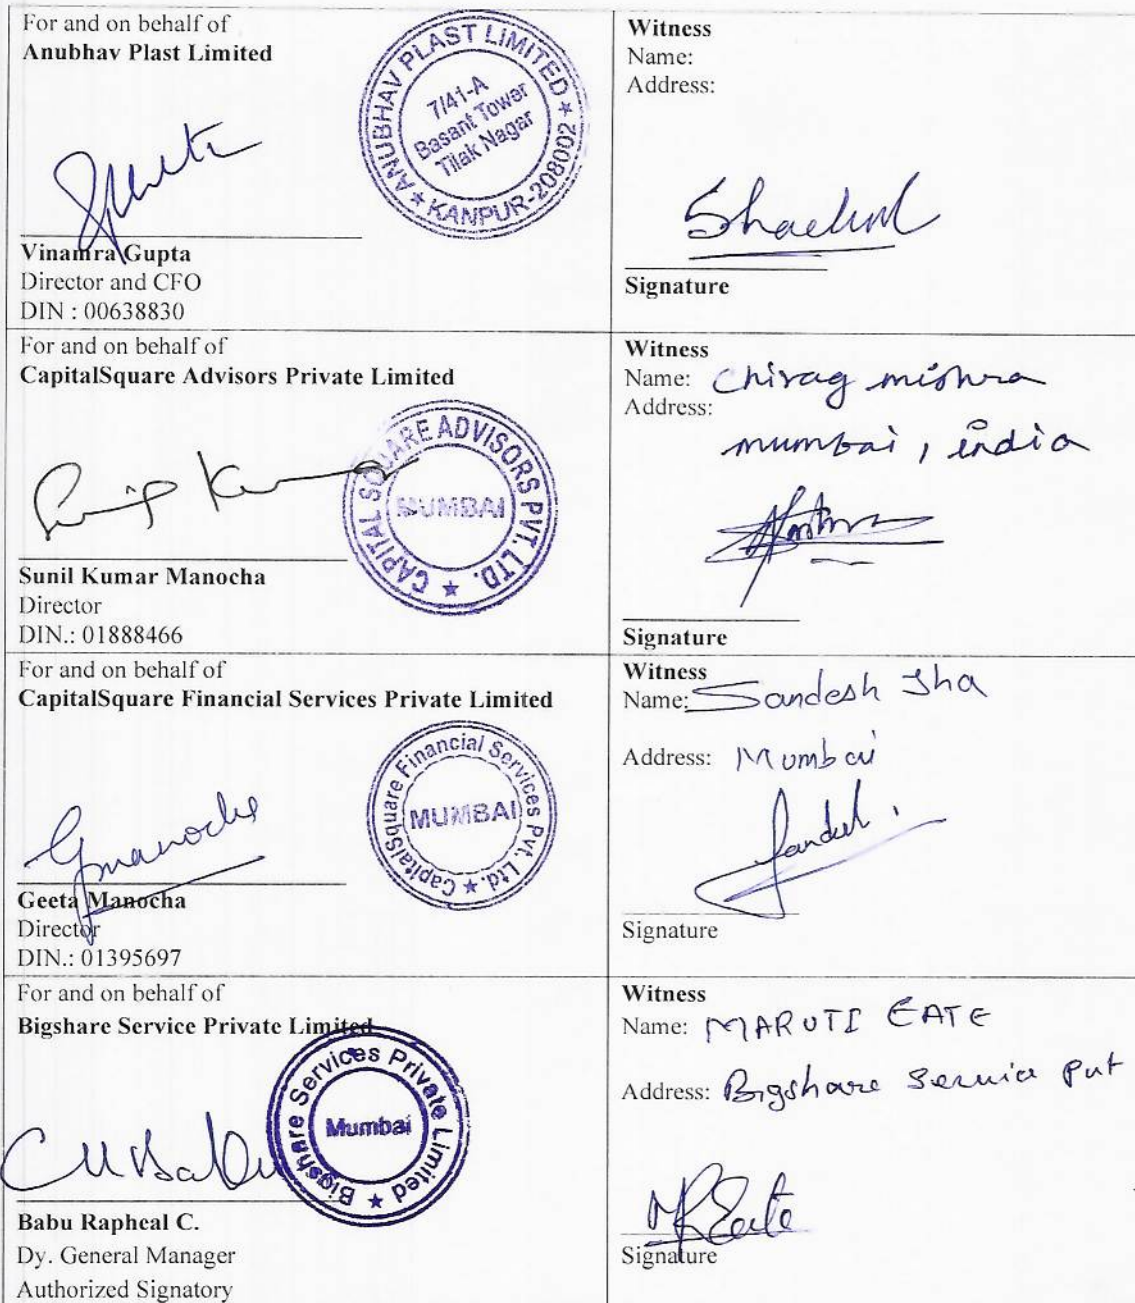 For and on behalf of
Anubhav Plast Limited
ANUBHAV PLAST LIMITED
★ KANPUR-208002 ★
7/41-A
Basant Tower
Tilak Nagar
Vinamra Gupta
Director and CFO
DIN : 00638830
Witness
Name:
Address:
Signature
For and on behalf of
CapitalSquare Advisors Private Limited
CAPITAL SQUARE ADVISORS PVT. LTD. ★
MUMBAI
Sunil Kumar Manocha
Director
DIN.: 01888466
Witness
Name: Chirag mishra
Address:
mumbai, india
Signature
For and on behalf of
CapitalSquare Financial Services Private Limited
CapitalSquare Financial Services Pvt. Ltd. ★
MUMBAI
Gmanocha
Geeta Manocha
Director
DIN.: 01395697
Witness
Name: Sandesh Jha
Address: Mumbai
Signature
For and on behalf of
Bigshare Service Private Limited
Bigshare Services Private Limited ★
Mumbai
Babu Rapheal C.
Dy. General Manager
Authorized Signatory
Witness
Name: MARUTI EATE
Address: Bigshare Service Pvt
Signature